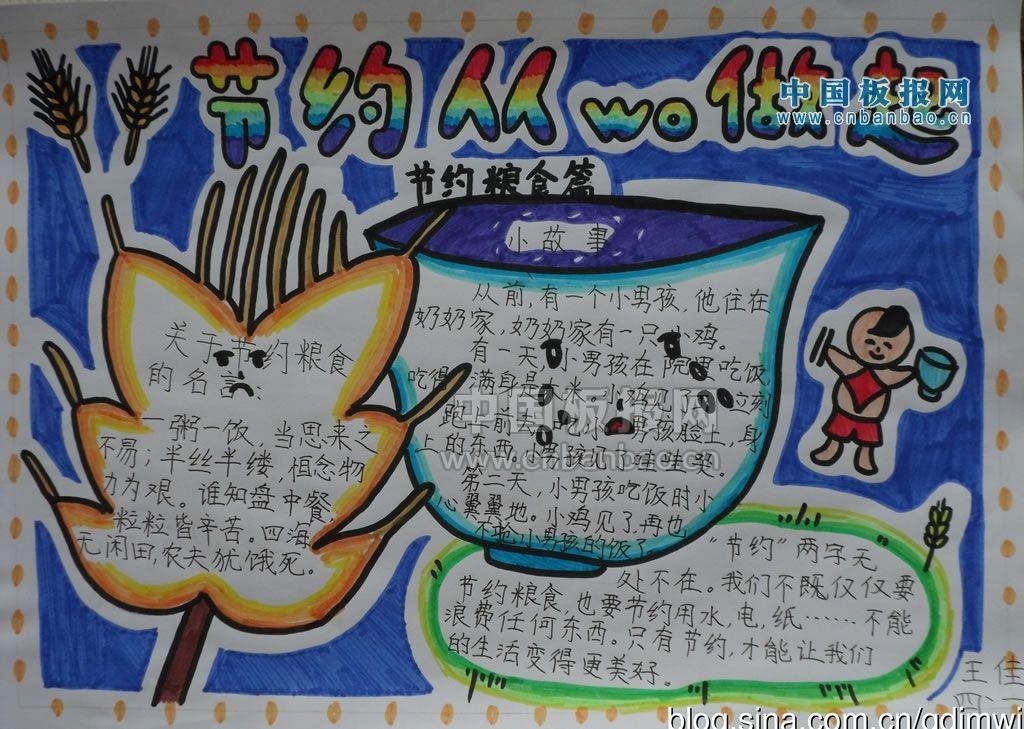 节约从wo做起
中国板报网
www.cnbanbao.cn
节约粮食篇
小故事
从前,有一个小男孩,他住在
奶奶家,奶奶家有一只小鸡。
有一天,小男孩在院里吃饭,
吃得满身是大米,小鸡见了,立刻
跑上前去,吃小男孩脸上,身
上的东西。小男孩见了哇哇哭。
第二天,小男孩吃饭时小
心翼翼地。小鸡见了,再也
不抢小男孩的饭了。
关于节约粮食
的名言:
一粥一饭,当思来之
不易;半丝半缕,恒念物
力为艰。谁知盘中餐,
粒粒皆辛苦。四海
无闲田,农夫犹饿死。
中国板报网
www.cnbanbao.cn
“节约”两字无
处不在。我们不既仅仅要
节约粮食,也要节约用水,电,纸……不能
浪费任何东西。只有节约,才能让我们
的生活变得更美好。
王佳
四
blog.sina.com.cn/qdjmwj